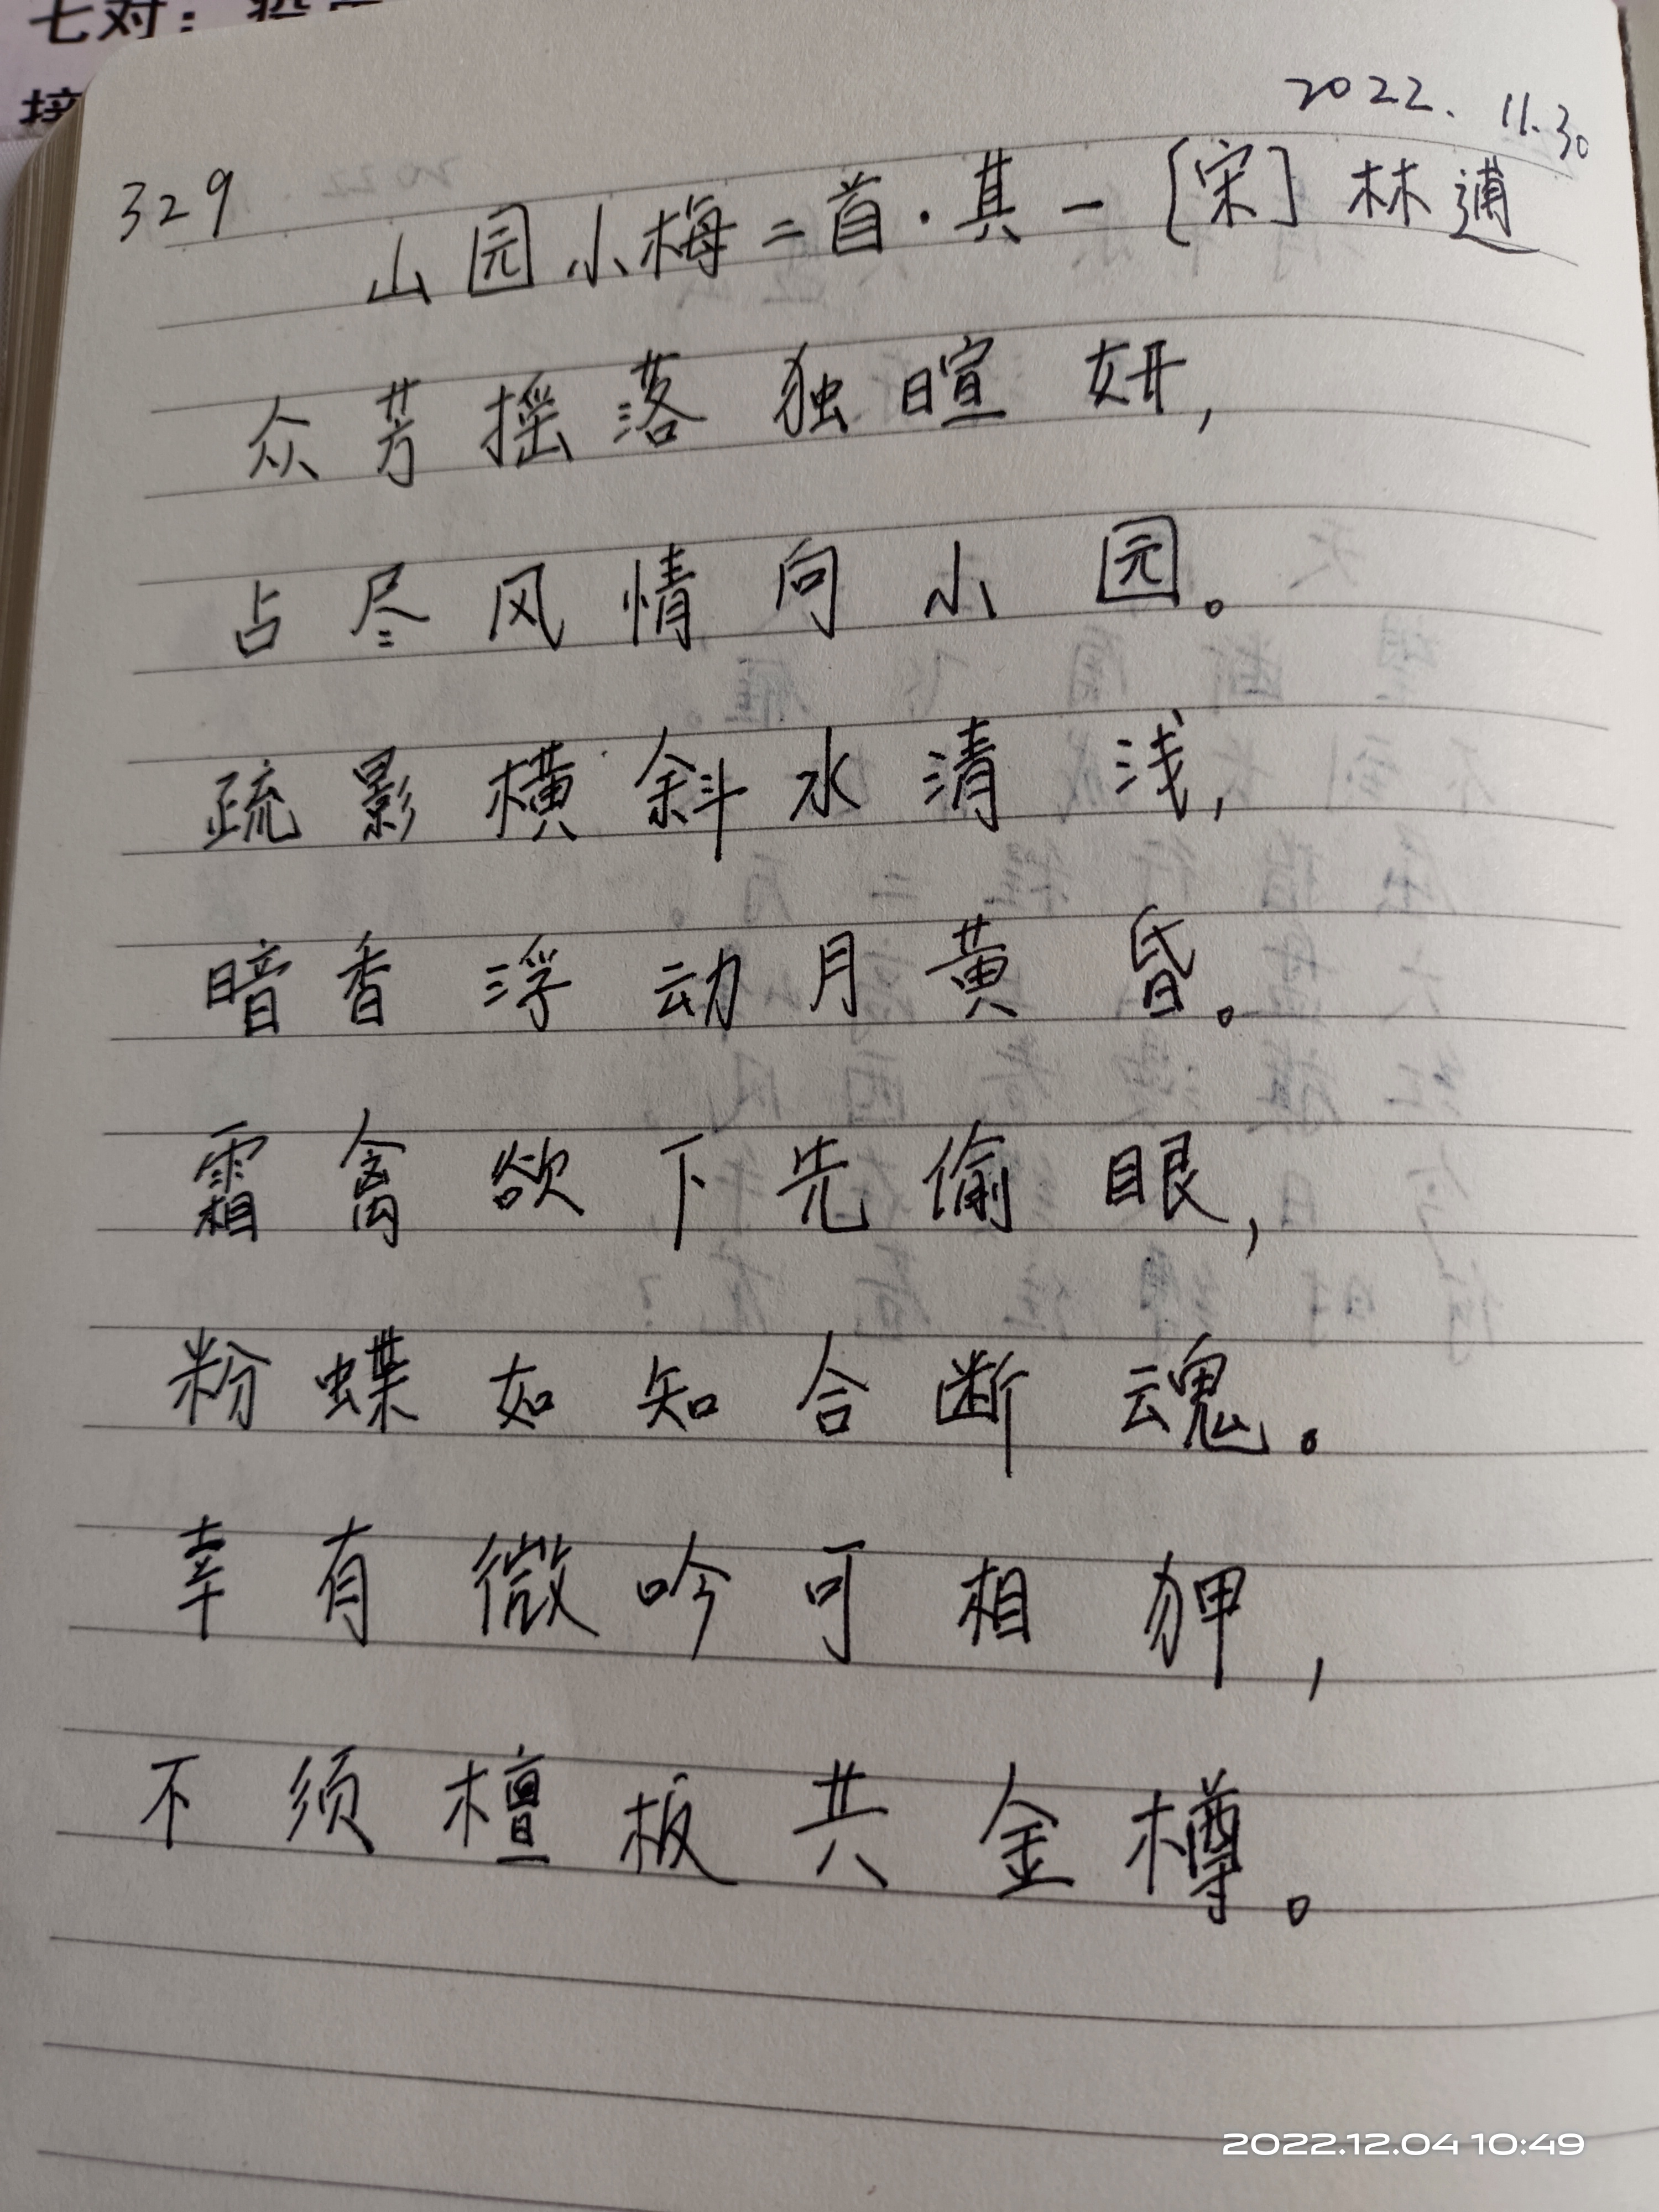 七对:
接
2022. 11.30
329
山园小梅二首·其一 [宋] 林逋
众芳摇落独暄妍,
占尽风情向小园。
疏影横斜水清浅,
暗香浮动月黄昏。
霜禽欲下先偷眼,
粉蝶如知合断魂。
幸有微吟可相狎,
不须檀板共金樽。
2022.12.04 10:49